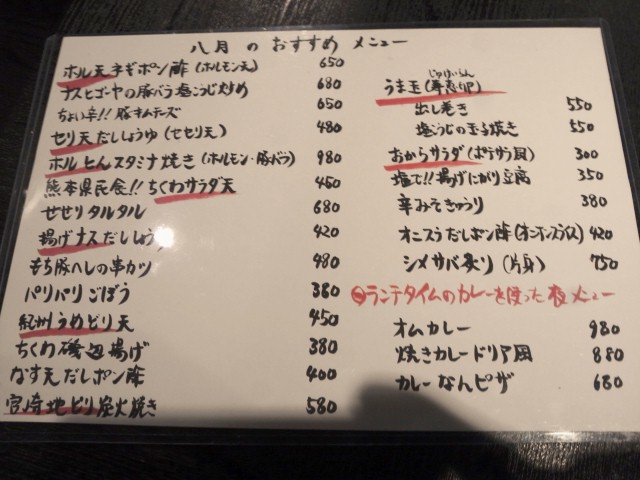 八月のおすすめメニュー
ホル天ネギポン酢(ホルモン天) 650
ナスとゴーヤの豚バラ塩こうじ炒め 680
ちょい辛!!豚キムチーズ 650
セリ天だししょうゆ(せせり天) 480
ホルとんスタミナ焼き(ホルモン・豚バラ) 980
熊本県民食!!ちくわサラダ天 450
せせりタルタル 680
揚げナスだししょうゆ 420
もち豚ヘレの串カツ 480
パリパリごぼう 380
紀州うめどり天 450
ちくわ磯辺揚げ 380
なす天だしポン酢 400
宮崎地どり炭火焼き 580
じゅけいらん
うま玉(寿恵卵)
出し巻き 550
塩こうじの玉子焼き 550
おからサラダ(ポテサラ風) 300
塩で!!揚げにがり豆腐 350
辛みそきゅうり 380
オニスラだしポン酢(オニオンスライス) 420
シメサバ炙り(片身) 750
ランチタイムのカレーを使った夜メニュー
オムカレー 980
焼きカレードリア風 880
カレーなんピザ 680